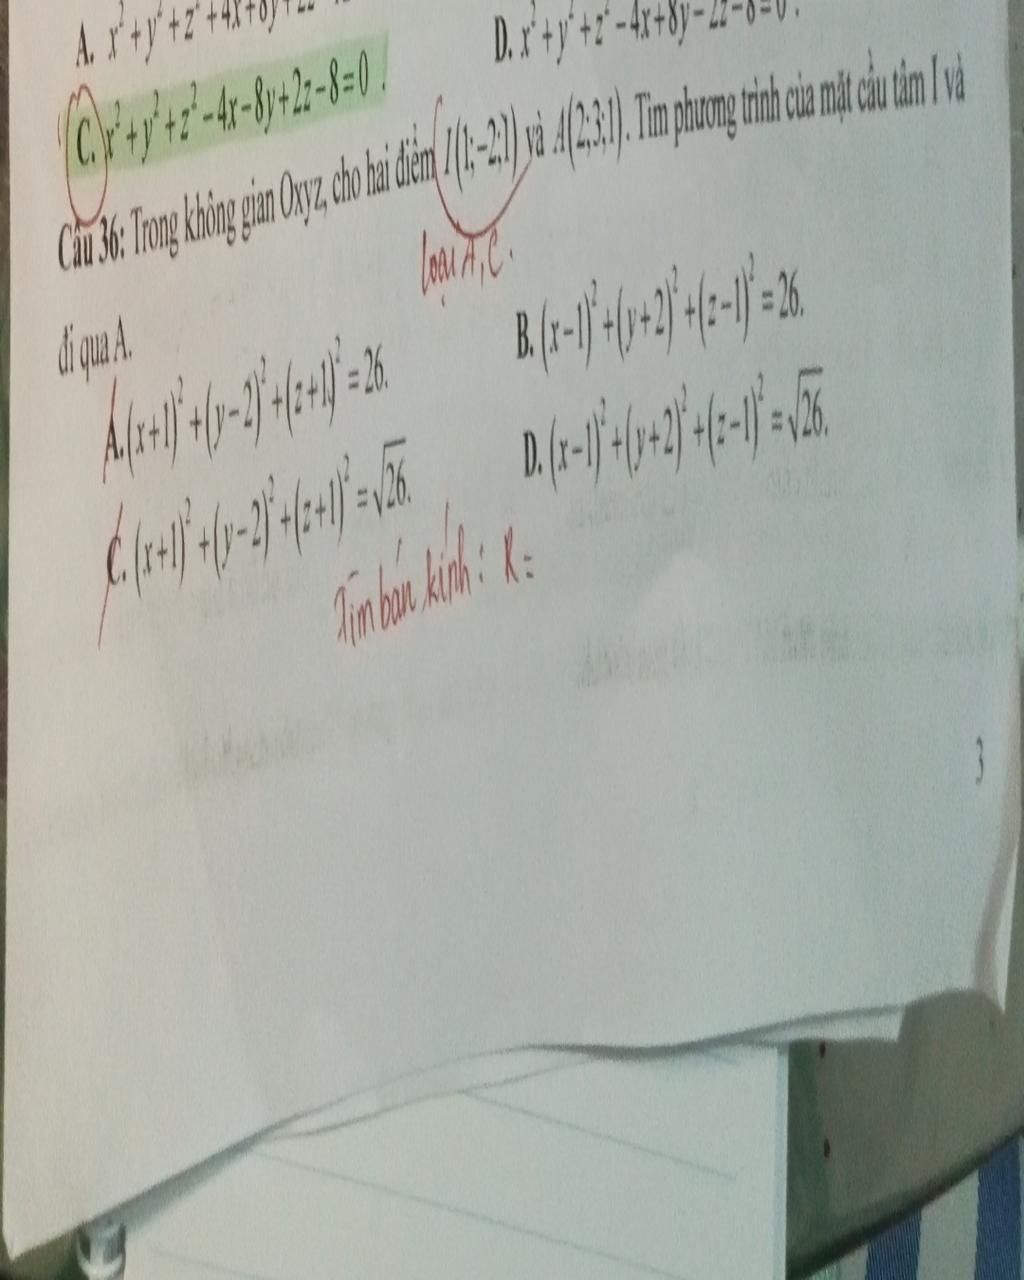 A. x² + y² + z² + 4x + 8y
D. x² + y² + z² − 4x + 8y − 2z − 8 = 0 .
C. x² + y² + z² − 4x − 8y + 2z − 8 = 0 .
Câu 36: Trong không gian Oxyz, cho hai điểm I(1;−2;1) và A(2;3;1). Tìm phương trình của mặt cầu tâm I và
loại A, C.
đi qua A.
A. (x+1)² + (y−2)² + (z+1)² = 26.
B. (x−1)² + (y+2)² + (z−1)² = 26.
C. (x+1)² + (y−2)² + (z+1)² = √26.
D. (x−1)² + (y+2)² + (z−1)² = √26.
Tìm bán kính : R =
3